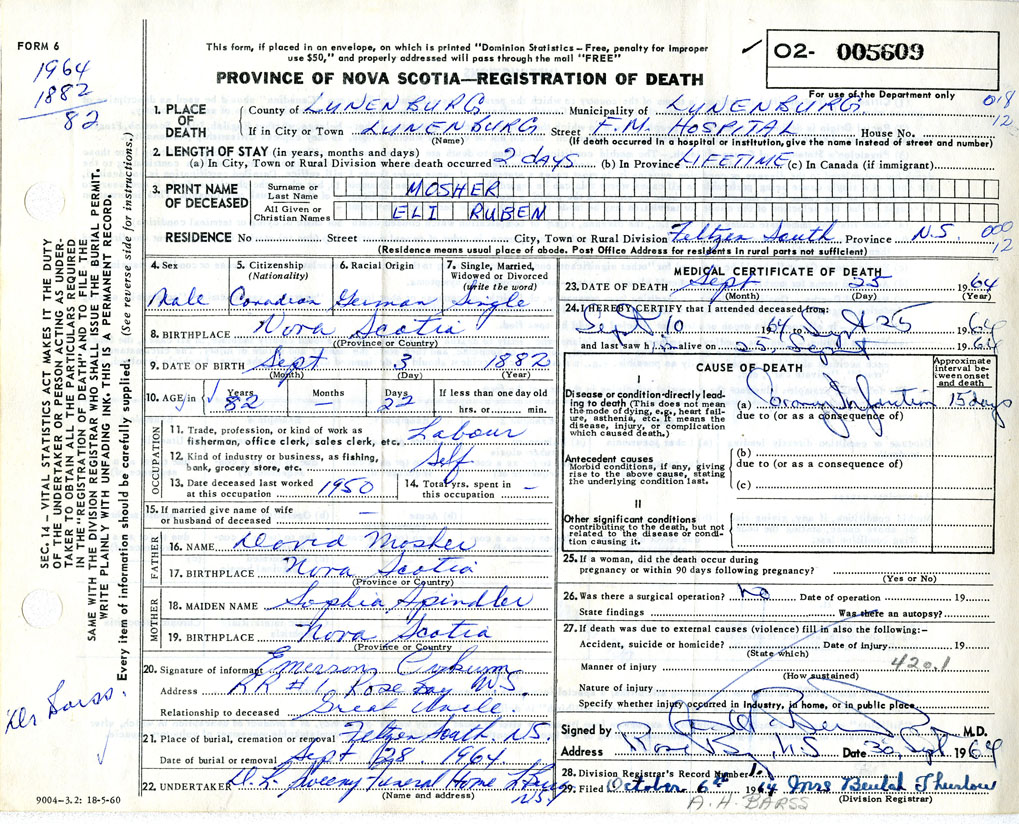 FORM 6
This form, if placed in an envelope, on which is printed "Dominion Statistics – Free, penalty for improper
use $50," and properly addressed will pass through the mail "FREE"
PROVINCE OF NOVA SCOTIA—REGISTRATION OF DEATH
✓ 02- 005609
For use of the Department only
1964
1882
82
018
12
1. PLACE OF DEATH County of LUNENBURG Municipality of LUNENBURG
If in City or Town LUNENBURG Street F.M. HOSPITAL House No.
(Name) (If death occurred in a hospital or institution, give the name instead of street and number)
2. LENGTH OF STAY (in years, months and days)
(a) In City, Town or Rural Division where death occurred 2 days (b) In Province LIFETIME (c) In Canada (if immigrant)
3. PRINT NAME OF DECEASED Surname or Last Name MOSHER
All Given or Christian Names ELI RUBEN
RESIDENCE No Street City, Town or Rural Division Feltzen South Province N.S.
000
12
(Residence means usual place of abode. Post Office Address for residents in rural parts not sufficient)
4. Sex 5. Citizenship (Nationality) 6. Racial Origin 7. Single, Married, Widowed or Divorced (write the word)
Male Canadian German Single
8. BIRTHPLACE Nova Scotia
(Province or Country)
9. DATE OF BIRTH Sept 3 1882
(Month) (Day) (Year)
10. AGE in Years Months Days If less than one day
82 – 22 hrs. or min.
OCCUPATION
11. Trade, profession, or kind of work as fisherman, office clerk, sales clerk, etc. Labour
12. Kind of industry or business, as fishing, bank, grocery store, etc. Self
13. Date deceased last worked at this occupation 1950
14. Total yrs. spent in this occupation –
15. If married give name of wife or husband of deceased –
FATHER
16. NAME David Mosher
17. BIRTHPLACE Nova Scotia
(Province or Country)
MOTHER
18. MAIDEN NAME Sophia Spindler
19. BIRTHPLACE Nova Scotia
(Province or Country)
20. Signature of informant Emerson
Address RR #1 Rose Bay N.S.
Relationship to deceased Great Uncle.
21. Place of burial, cremation or removal Feltzen South N.S.
Date of burial or removal Sept 28 1964
22. UNDERTAKER D. L. Sweeny Funeral Home L'Burg
N.S.
(Name and address)
MEDICAL CERTIFICATE OF DEATH
23. DATE OF DEATH Sept 25 1964
(Month) (Day) (Year)
24. I HEREBY CERTIFY that I attended deceased from:
Sept 10 1964 to Sept 25 1964
and last saw him alive on 25, Sept 1964
CAUSE OF DEATH
Approximate interval between onset and death
I
Disease or condition directly leading to death (This does not mean the mode of dying, e.g., heart failure, asthenia, etc. It means the disease, injury, or complication which caused death.)
(a) Coronary Infarction 15 days
due to (or as a consequence of)
Antecedent causes
Morbid conditions, if any, giving rise to the above cause, stating the underlying condition last.
(b)
due to (or as a consequence of)
(c)
II
Other significant conditions contributing to the death, but not related to the disease or condition causing it.
25. If a woman, did the death occur during
pregnancy or within 90 days following pregnancy?
(Yes or No)
26. Was there a surgical operation? No Date of operation 19
State findings Was there an autopsy?
27. If death was due to external causes (violence) fill in also the following:–
Accident, suicide or homicide? Date of injury 19
(State which)
420.1
Manner of injury
(How sustained)
Nature of injury
Specify whether injury occurred in Industry, in home, or in public place
Signed by M.D.
Address Rose Bay N.S Date 30, Sept 1964
28. Division Registrar's Record Number 1.
29. Filed October 6th 1964 Mrs Beulah Thurlow
(Division Registrar)
A. H. BARSS
SEC. 14 – VITAL STATISTICS ACT MAKES IT THE DUTY
OF THE UNDERTAKER OR PERSON ACTING AS UNDER-
TAKER TO OBTAIN ALL THE PARTICULARS REQUIRED
IN THE "REGISTRATION OF DEATH" AND TO FILE THE
SAME WITH THE DIVISION REGISTRAR WHO SHALL ISSUE THE BURIAL PERMIT.
WRITE PLAINLY WITH UNFADING INK. THIS IS A PERMANENT RECORD.
Every item of information should be carefully supplied. (See reverse side for instructions.)
Barss.
9004–3.2: 18-5-60